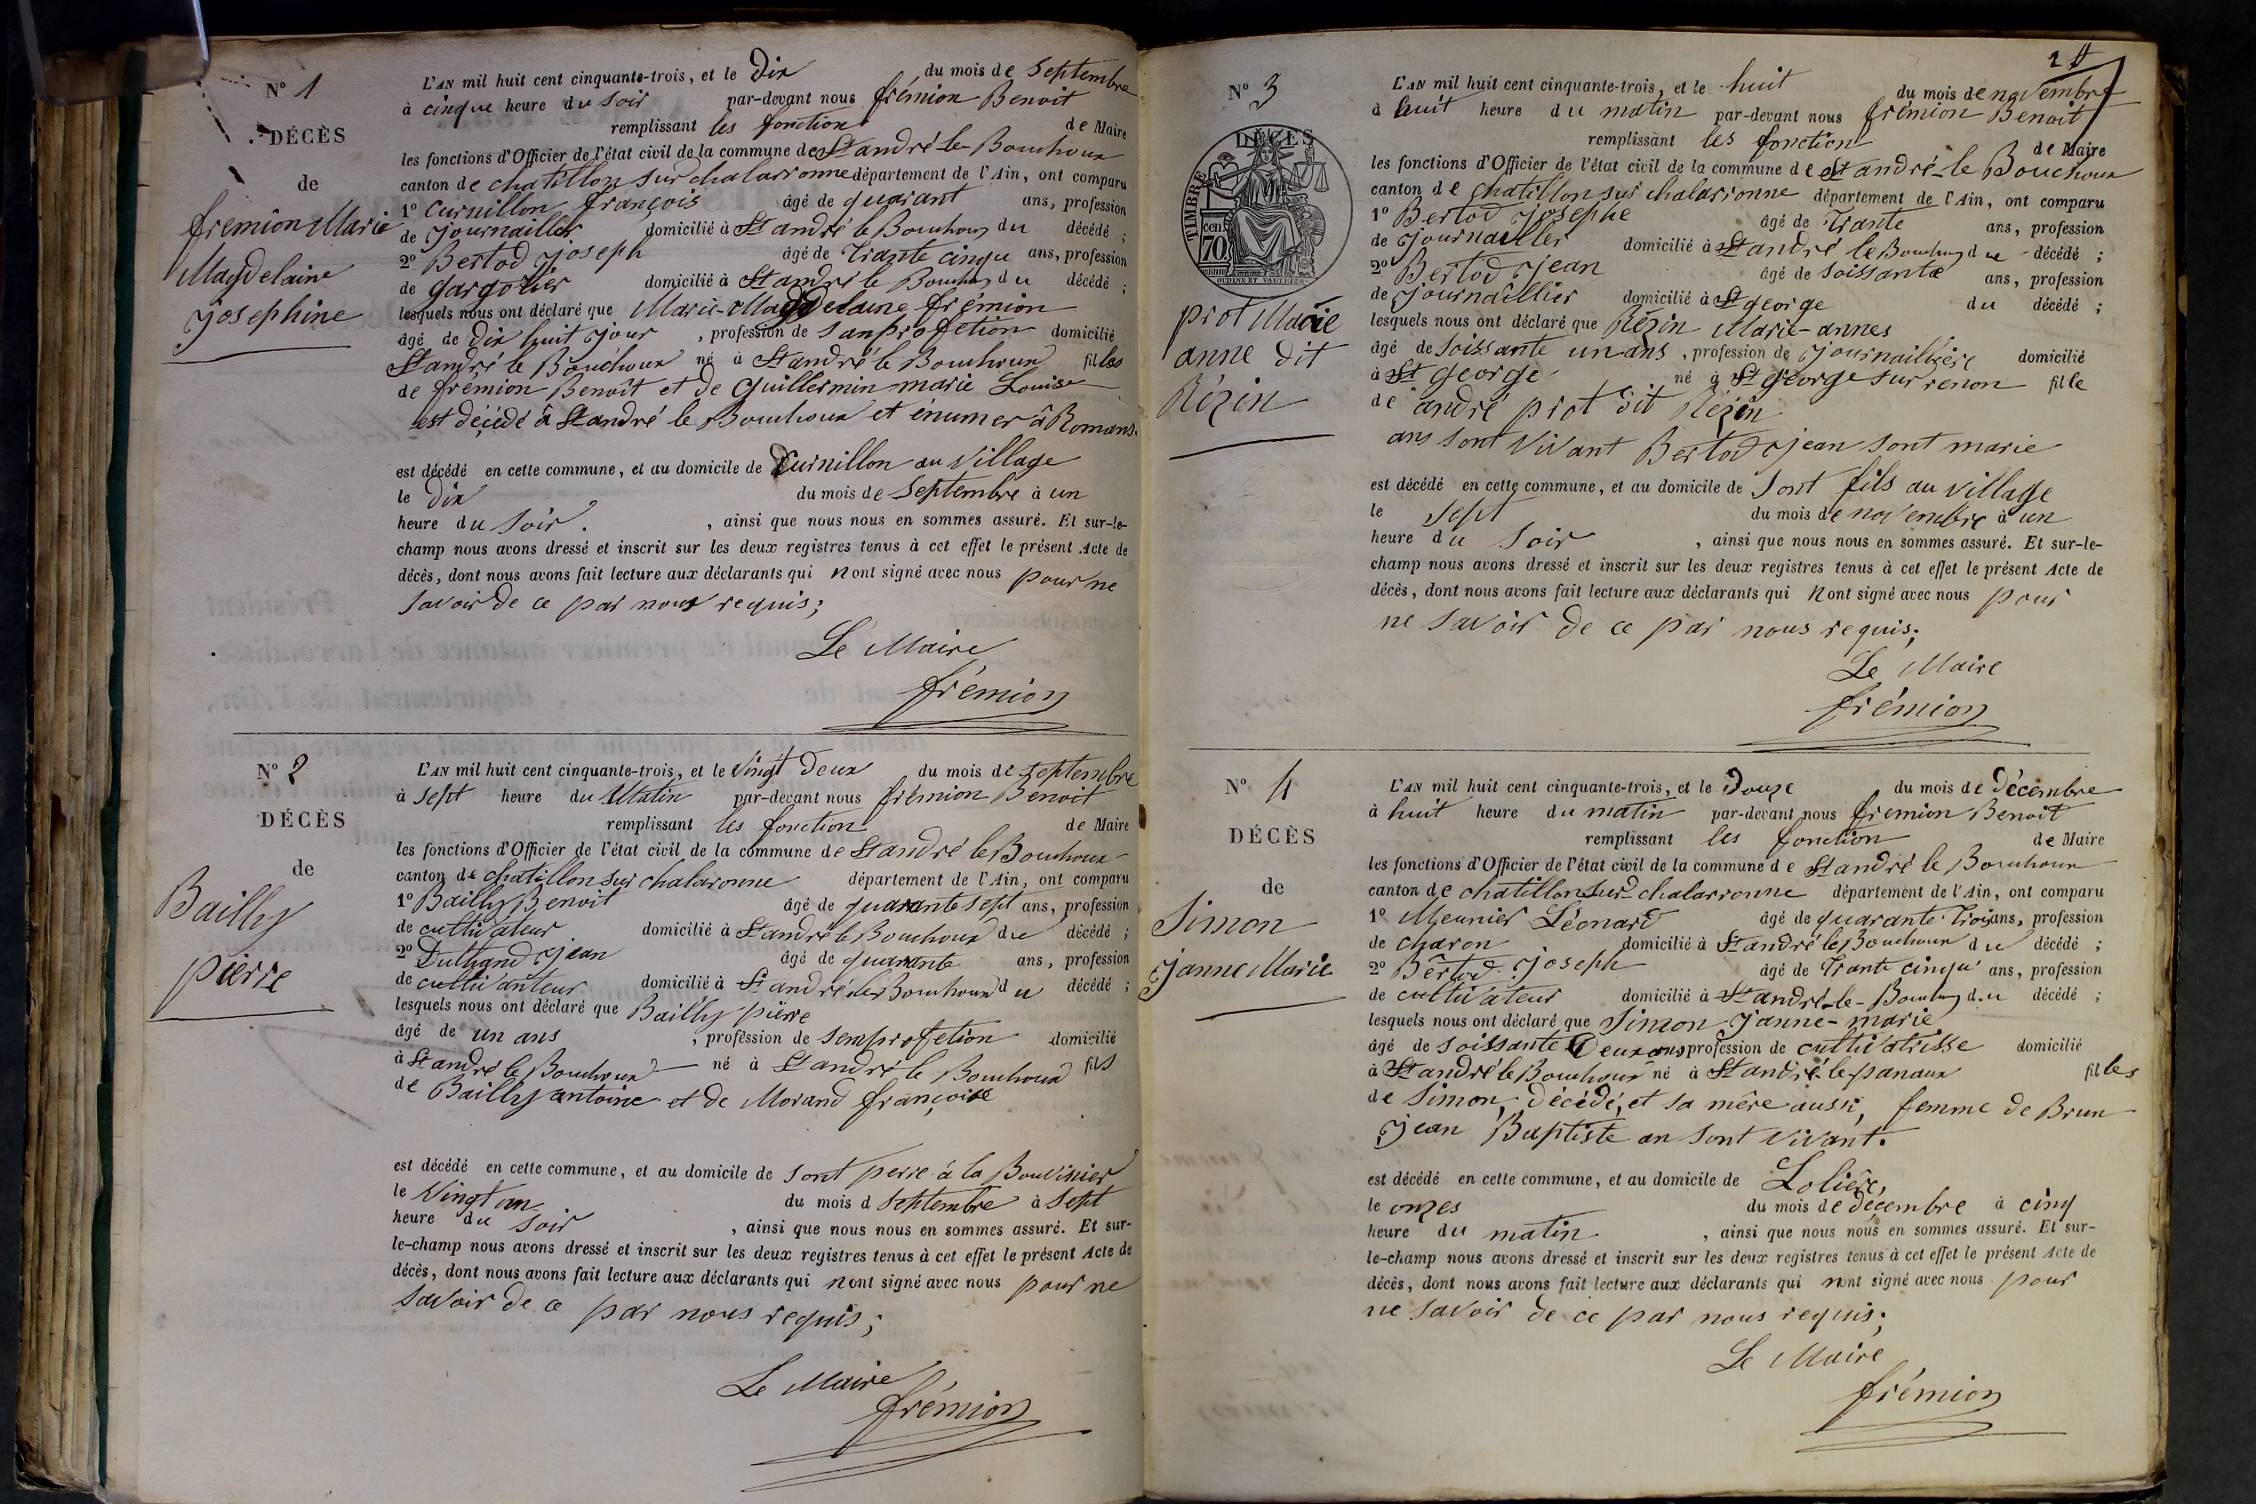 N° 1
DÉCÈS
de
fremion Marie
Magdelaine
josephine
L'AN mil huit cent cinquante-trois, et le dix du mois de septembre
à cinque heure du soir par-devant nous frémion Benoit
remplissant les fonction de Maire
les fonctions d'Officier de l'état civil de la commune de St andré le Bouchoux
canton de chatillon sur chalaronne département de l'Ain, ont comparu
1° Curnillon françois âgé de quarant ans, profession
de journaillier domicilié à St andré le Bouchoux du décédé ;
2° Bertod joseph âgé de trante cinqu ans, profession
de gargotier domicilié à St andré le Bouchoux du décédé ;
lesquels nous ont déclaré que Marie-Magdelaine frémion
âgé de dix huit jour , profession de sanprofetion domicilié
St andré le Bouchoux né à St andré le Bouchoux filles
de frémion Benoit et de guillermin marie Louise
est décédé à St andré le Bouchoux et énumer à Romans.
est décédé en cette commune, et au domicile de Curnillon au village
le dix du mois de septembre à un
heure du soir. , ainsi que nous nous en sommes assuré. Et sur-le-
champ nous avons dressé et inscrit sur les deux registres tenus à cet effet le présent Acte de
décès, dont nous avons fait lecture aux déclarants qui nont signé avec nous pour ne
savoir de ce par nous requis;
Le Maire
frémion
N° 2
DÉCÈS
de
Bailly
pierre
L'AN mil huit cent cinquante-trois, et le vingt deux du mois de septembre
à sept heure du Matin par-devant nous frémion Benoit
remplissant les fonction de Maire
les fonctions d'Officier de l'état civil de la commune de St andré le Bouchoux
canton de chatillon sur chalaronne département de l'Ain, ont comparu
1° Bailly Benoit âgé de quarante sept ans, profession
de cultivateur domicilié à St andré le Bouchoux du décédé ;
2° jean âgé de quarante ans, profession
de cultivanteur domicilié à St andré le Bouchoux du décédé ;
lesquels nous ont déclaré que Bailly pierre
âgé de un ans , profession de semprofetion domicilié
à St andré le Bouchoux né à St andré le Bouchoux fils
de Bailly antoine et de Morand françoise
est décédé en cette commune, et au domicile de sont perre à la
le vingt un du mois d septembre à sept
heure du soir , ainsi que nous nous en sommes assuré. Et sur-
le-champ nous avons dressé et inscrit sur les deux registres tenus à cet effet le présent Acte de
décès, dont nous avons fait lecture aux déclarants qui nont signé avec nous pour ne
savoir de ce par nous requis;
Le Maire
frémion
N° 3
DÉCÈS
TIMBRE
70 cen
prot Marie
anne dit
Rézin
L'AN mil huit cent cinquante-trois, et le huit du mois de novembre
à huit heure du matin par-devant nous frémion Benoit
remplissant les fonction de Maire
les fonctions d'Officier de l'état civil de la commune de St andré-le Bouchoux
canton de chatillon sur chalaronne département de l'Ain, ont comparu
1° Bertod josephe âgé de trante ans, profession
de journailler domicilié à St andré le Bouchoux du décédé ;
2° Bertod jean âgé de soissante ans, profession
de journaillier domicilié à St george du décédé ;
lesquels nous ont déclaré que Rézin Marie-annes
âgé de soissante un ans , profession de journaillière domicilié
à St george né à St george sur renon fille
de andré prot dit Rézin
ans sont vivant Bertod jean sont marie
est décédé en cette commune, et au domicile de sont fils au village
le sept du mois de novembre à un
heure du soir , ainsi que nous nous en sommes assuré. Et sur-le-
champ nous avons dressé et inscrit sur les deux registres tenus à cet effet le présent Acte de
décès, dont nous avons fait lecture aux déclarants qui nont signé avec nous pour
ne savoir de ce par nous requis;
Le Maire
frémion
N° 4
DÉCÈS
de
Simon
janne Marie
L'AN mil huit cent cinquante-trois, et le douze du mois de décembre
à huit heure du matin par-devant nous fremion Benoit
remplissant les fonction de Maire
les fonctions d'Officier de l'état civil de la commune de St andré le Bouchoux
canton de chatillon sur-chalarronne département de l'Ain, ont comparu
1° Meunier Léonard âgé de quarante trois ans, profession
de charon domicilié à St andré le Bouchoux du décédé ;
2° Bertod joseph âgé de trante cinqu ans, profession
de cultivateur domicilié à St andré-le-Bouchoux du décédé ;
lesquels nous ont déclaré que Simon janne-marie
âgé de soissante deux ans profession de cultivatrisse domicilié
à St andré le Bouchoux né à St andré le panoux filles
de Simon, décédé, et sa mère aussi, femme de Brun
jean Baptiste an sont vivant.
est décédé en cette commune, et au domicile de Lolière,
le onzes du mois de décembre à cinq
heure du matin , ainsi que nous nous en sommes assuré. Et sur-
le-champ nous avons dressé et inscrit sur les deux registres tenus à cet effet le présent Acte de
décès, dont nous avons fait lecture aux déclarants qui nont signé avec nous pour
ne savoir de ce par nous requis;
Le Maire
frémion